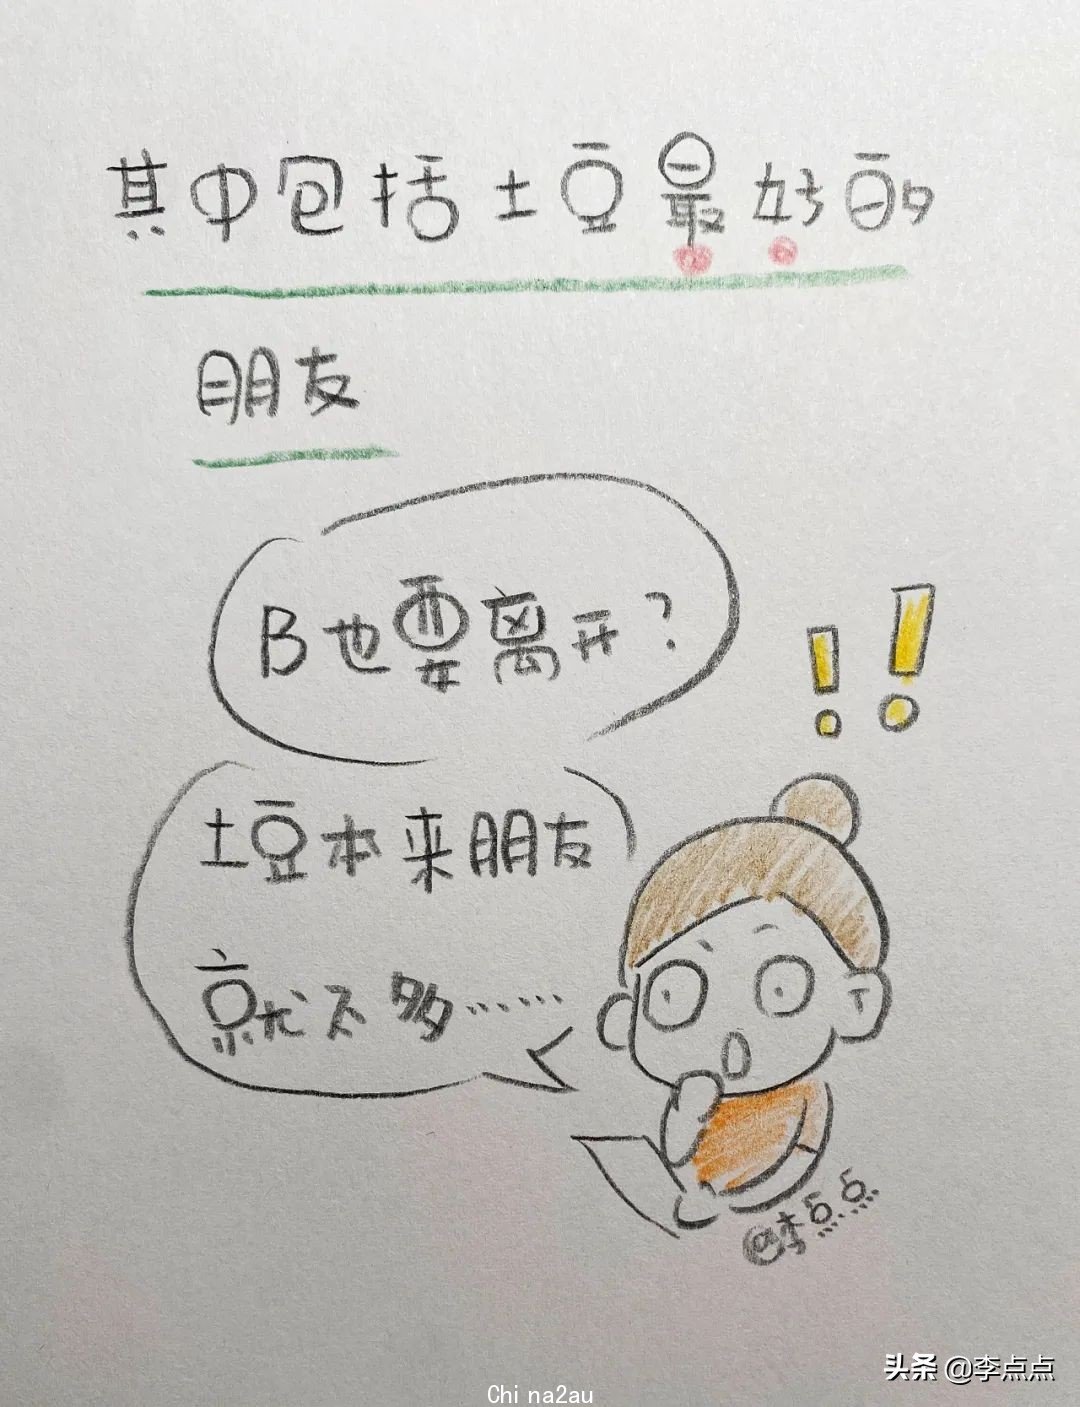 其中包括土豆最好的
朋友
B也要离开？
土豆本来朋友
就不多……
@李点点
头条 @李点点
China2au